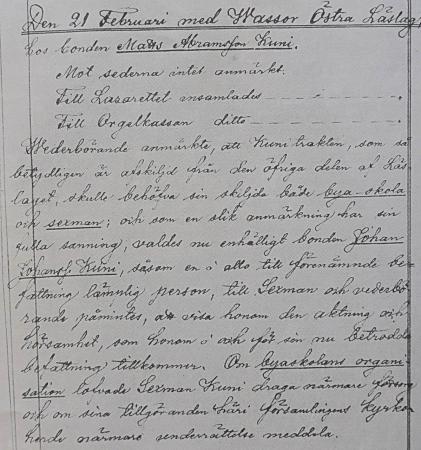 Den 21 Februari med Wassor Östra Läslag,
hos bonden Matts Abramsson Kuni.
Mot sederna intet anmärkt.
Till Lazarettet insamlades — — — .
Till Orgelkassan ditto — — — .
Wederbörande anmärkte, att Kuni trakten, som så
betydligen är afskiljd från den öfriga delen af Läs-
laget, skulle behöfva sin skiljda både bya-skola
och sexman; och som en slik anmärkning har sin
fulla sanning, valdes nu enhälligt bonden Johan
Johansf. Kuni, såsom en i allo till förenämnde be-
fattning lämnlig person, till Sexman och vederbö-
rande påmintes, at visa honom den aktning och
hörsamhet, som honom i och för sin nu betrodda
befattning tillkommer. Om byaskolans organi-
sation lofvade Sexman Kuni draga närmare försorg
och om sina tillgöranden häri församlingens Kyrko-
herde närmare underrättelse meddela.